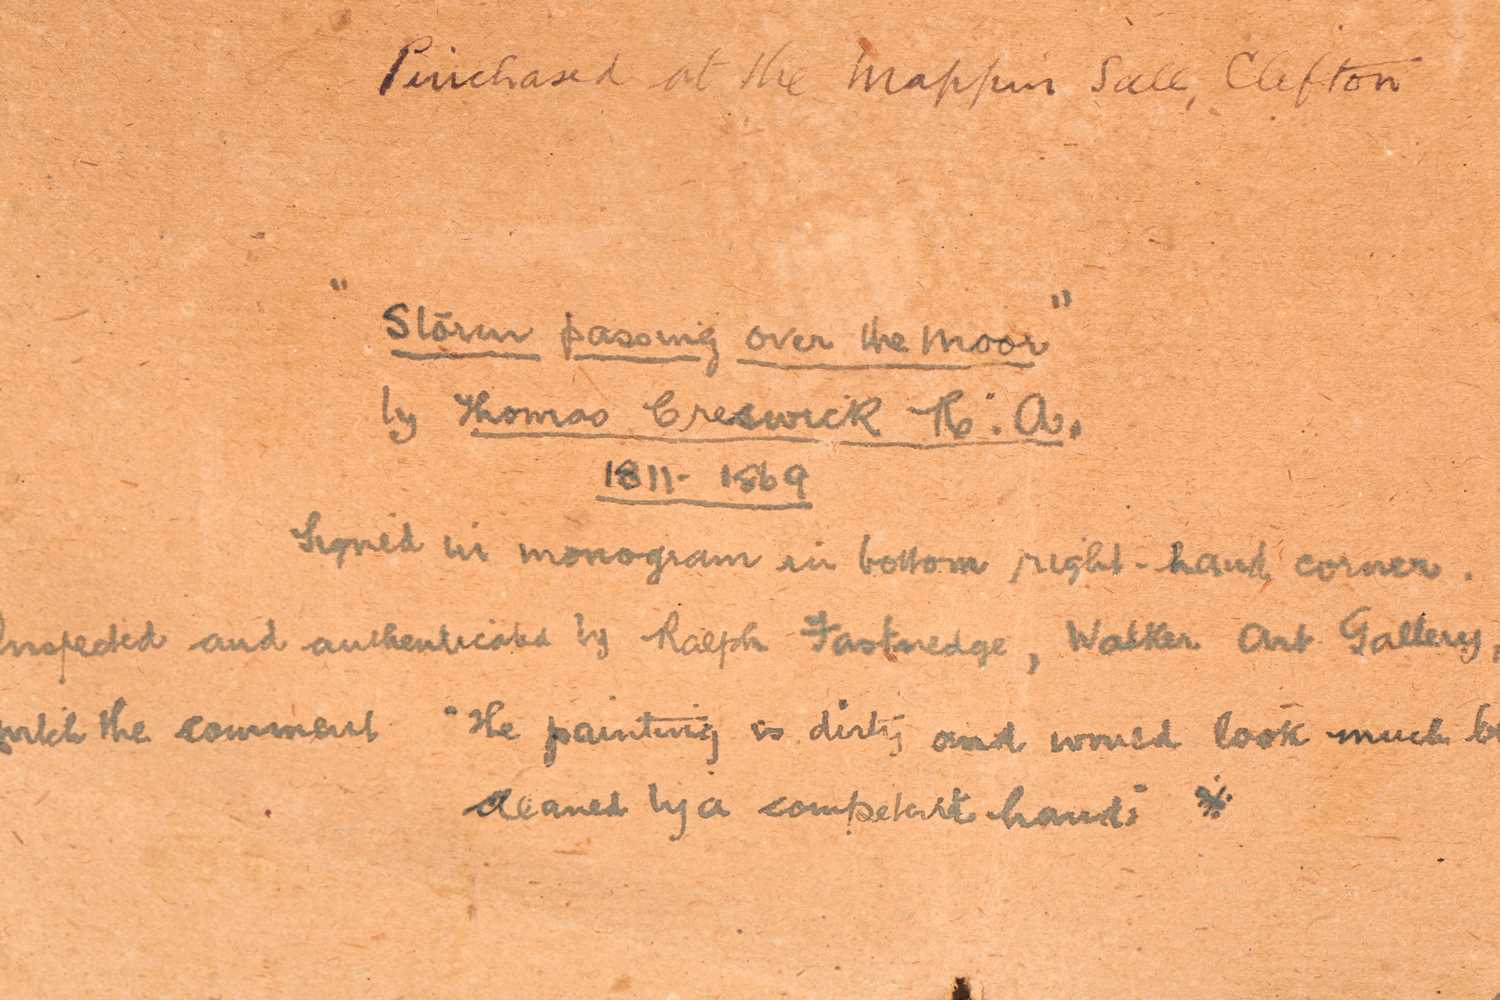 Purchased at the Mappin Sale, Clifton
"Storm passing over the Moor"
by Thomas Creswick R.A.
1811-1869
Signed in monogram in bottom right-hand corner.
Inspected and authenticated by Ralph Fastnedge, Walker Art Gallery,
with the comment "The painting is dirty and would look much be
cleaned by a competent hand" *